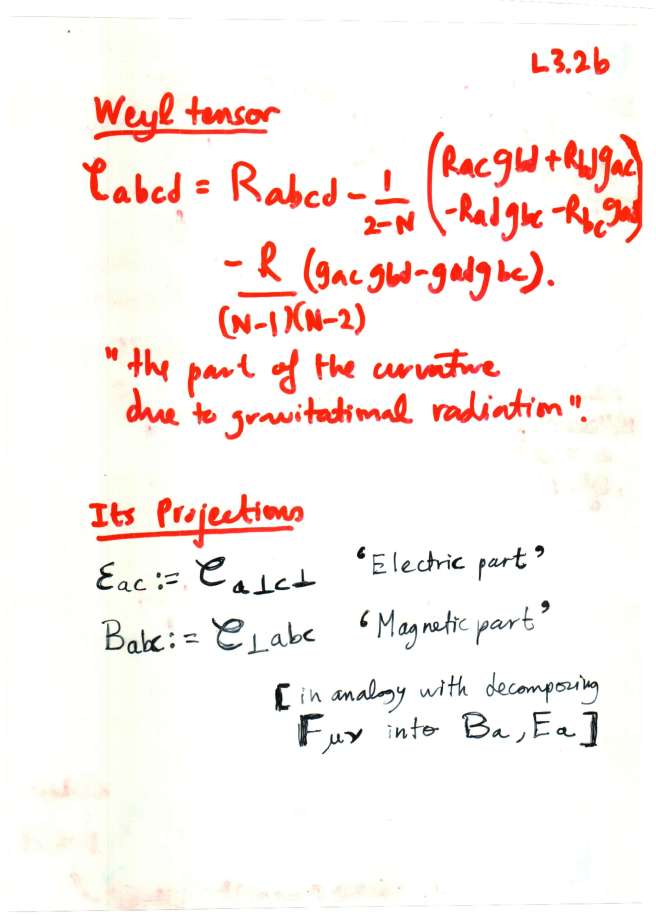 L3.2b
Weyl tensor
Cabcd = Rabcd - 1/(2-N) (Rac gbd + Rbd gac - Rad gbc - Rbc gad)
- R/((N-1)(N-2)) (gac gbd - gad gbc).
"the part of the curvature
due to gravitational radiation".
Its Projections
Eac := Ca⊥c⊥ 'Electric part'
Babc := C⊥abc 'Magnetic part'
[in analogy with decomposing
Fμν into Ba, Ea]